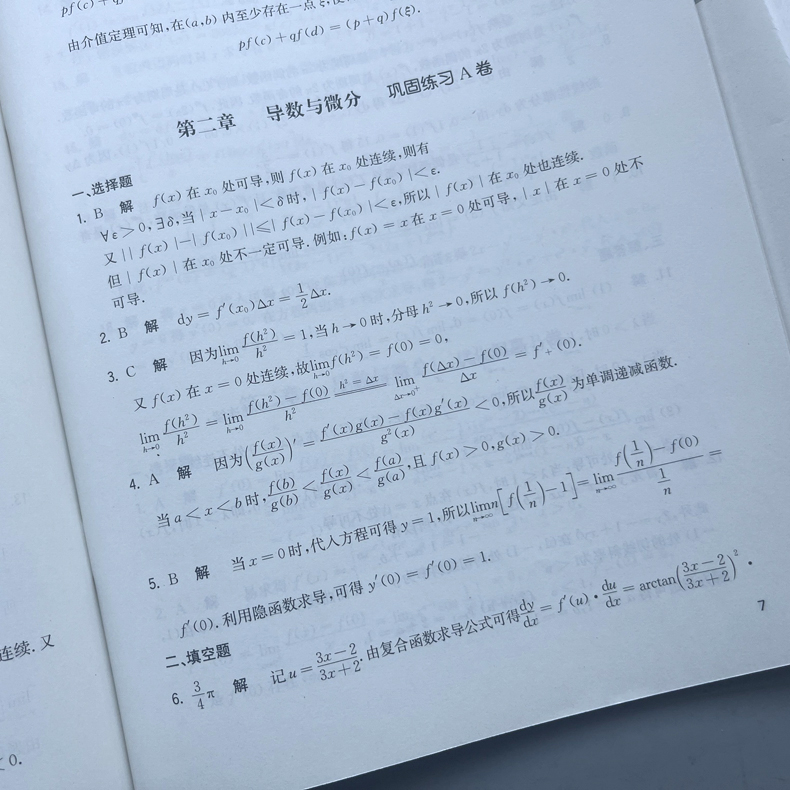 pf(c)+q
由介值定理可知,在(a,b)内至少存在一点ξ,
pf(c)+qf(d)=(p+q)f(ξ).
第二章 导数与微分 巩固练习A卷
一、选择题
1. B 解 f(x)在x₀处可导,则f(x)在x₀处连续,则有
∀ε>0,∃δ,当|x-x₀|<δ时,|f(x)-f(x₀)|<ε.
又||f(x)|-|f(x₀)||≤|f(x)-f(x₀)|<ε,所以|f(x)|在x₀处也连续.
但|f(x)|在x₀处不一定可导.例如:f(x)=x在x=0处可导,|x|在x=0处不
可导.
2. B 解 dy=f′(x₀)Δx=\frac{1}{2}Δx.
3. C 解 因为\lim_{h→0}\frac{f(h²)}{h²}=1,当h→0时,分母h²→0,所以f(h²)→0.
又f(x)在x=0处连续,故\lim_{h→0}f(h²)=f(0)=0,
\lim_{h→0}\frac{f(h²)}{h²}=\lim_{h→0}\frac{f(h²)-f(0)}{h²}\xlongequal{h²=Δx}\lim_{Δx→0⁺}\frac{f(Δx)-f(0)}{Δx}=f′₊(0).
4. A 解 因为(\frac{f(x)}{g(x)})′=\frac{f′(x)g(x)-f(x)g′(x)}{g²(x)}<0,所以\frac{f(x)}{g(x)}为单调递减函数.
当a<x<b时,\frac{f(b)}{g(b)}<\frac{f(x)}{g(x)}<\frac{f(a)}{g(a)},且f(x)>0,g(x)>0.
5. B 解 当x=0时,代入方程可得y=1,所以\lim_{n→∞}n[f(\frac{1}{n})-1]=\lim_{n→∞}\frac{f(\frac{1}{n})-f(0)}{\frac{1}{n}}=
f′(0).利用隐函数求导,可得y′(0)=f′(0)=1.
二、填空题
6. \frac{3}{4}π 解 记u=\frac{3x-2}{3x+2}.由复合函数求导公式可得\frac{dy}{dx}=f′(u)·\frac{du}{dx}=arctan(\frac{3x-2}{3x+2})²·
7
连续.又
0.